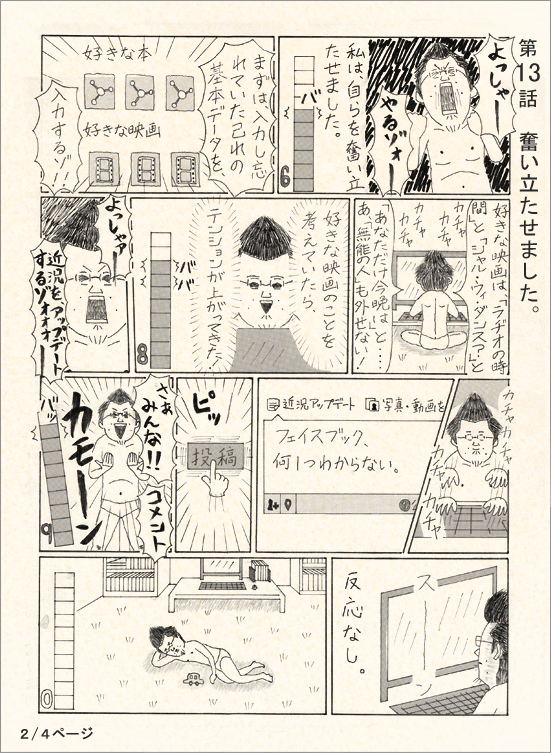 第13話　奮い立たせました。
よっしゃー
やるゾォー
私は、自らを奮い立
たせました。
バ
6
まずは入力し忘
れていた己れの
基本データを、
入力するゾ!!
好きな本
好きな映画
好きな映画は、「ラヂオの時
間」と、「シャル・ウィ・ダンス?」と
「あなただけ今晩は」と…
あ、「無能の人」も外せない!
カチャ
カチャ
カチャ
カチャ
好きな映画のことを
考えていたら、
テンションが上がってきた!
バ
バ
8
よっしゃァー
近況をアップデート
するゾォオオー
カチャカチャ
カチャ
カチャ
近況アップデート
写真・動画を
フェイスブック、
何1つわからない。
ピッ
投稿
さぁ
みんな!!
コメント
カモーン
バッ
9
スーン
反応なし。
0
2/4ページ